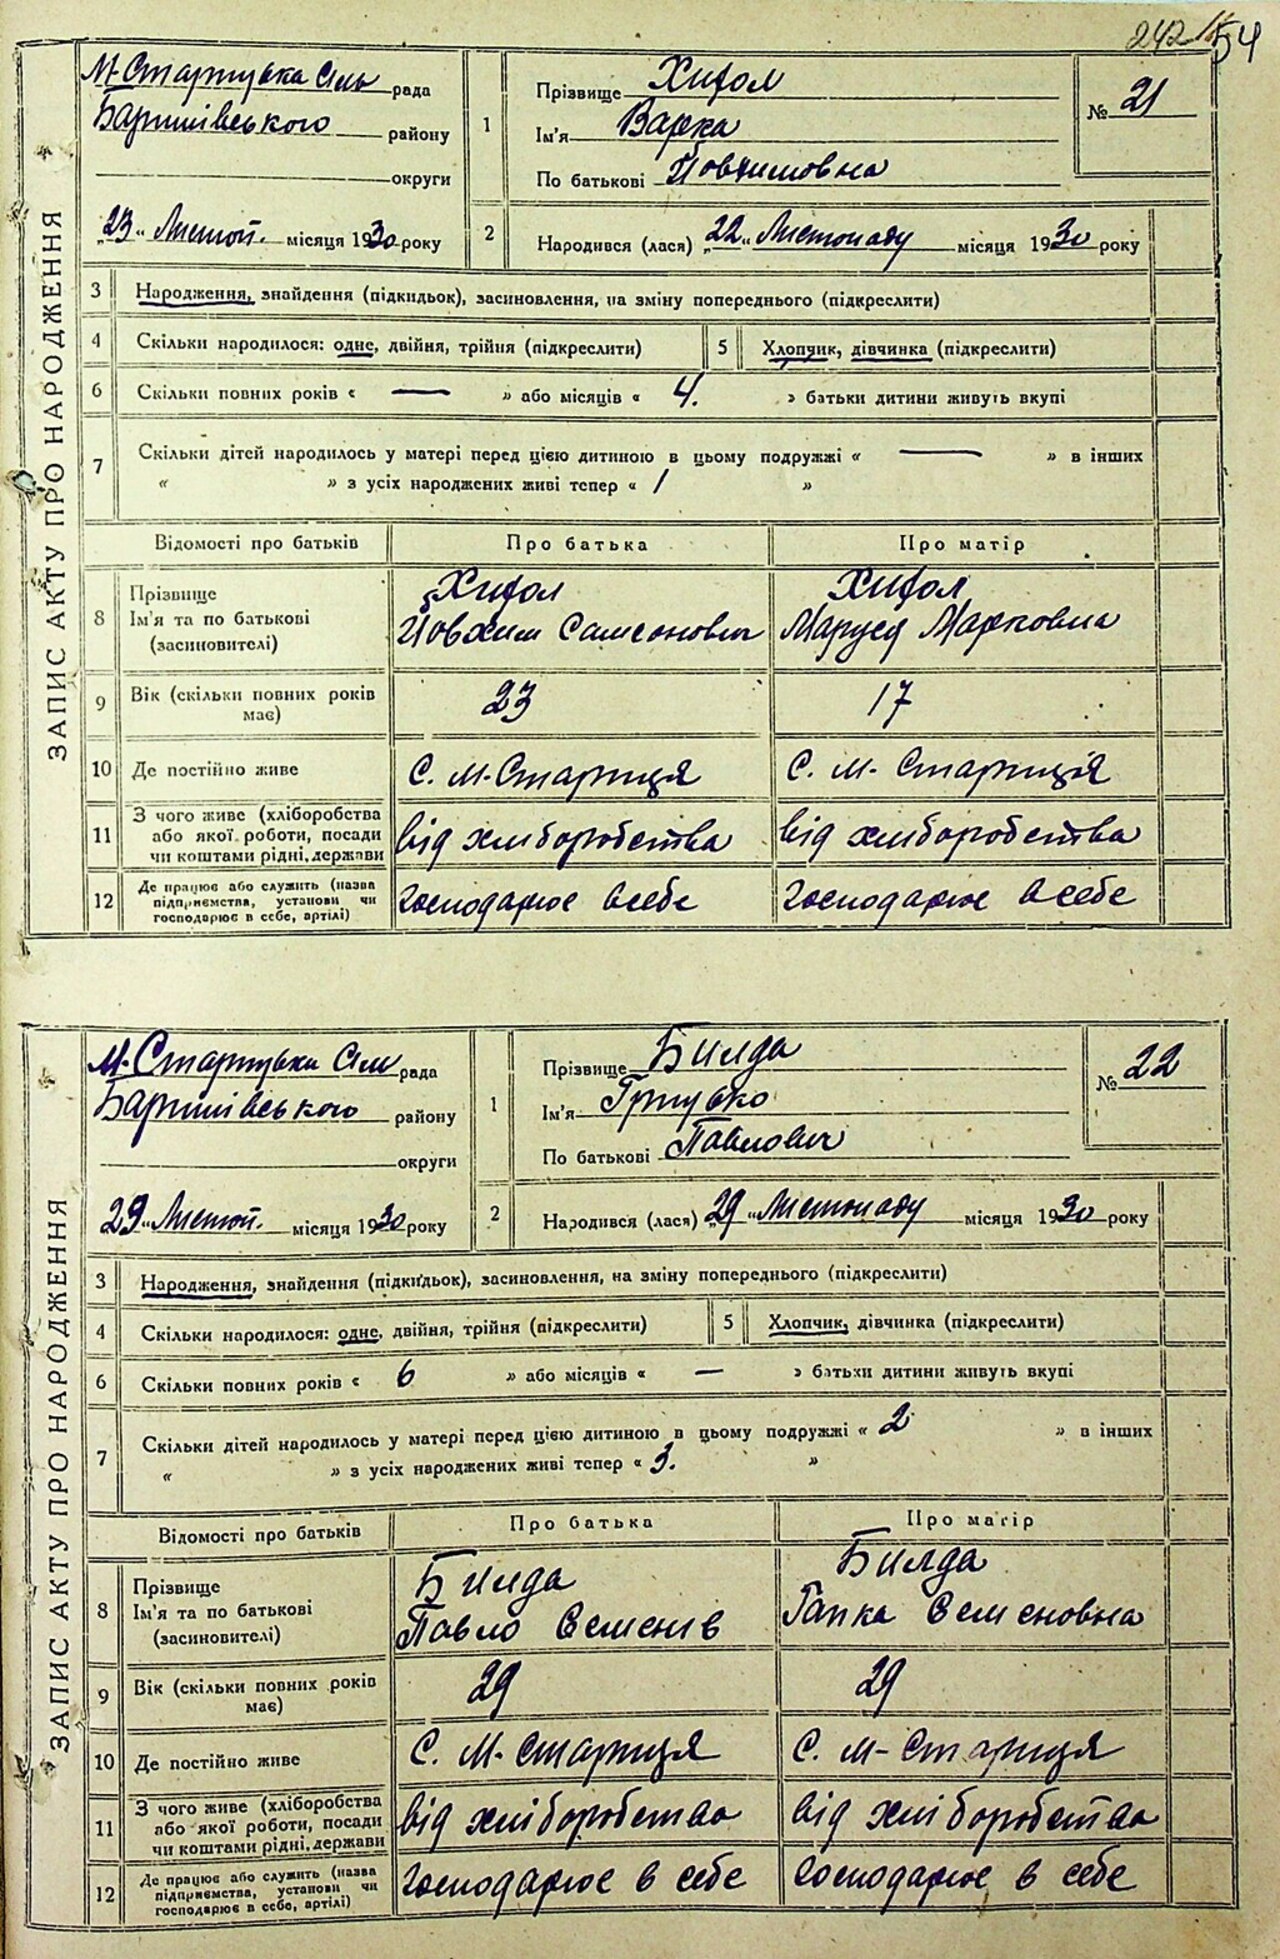 242 54
ЗАПИС АКТУ ПРО НАРОДЖЕННЯ
М-Старицька Сіль рада
Баришівського району
округи
„23“ Листоп. місяця 1930 року
1
Прізвище Хифол
Ім'я Варка
По батькові Йовхимовна
№ 21
2
Народився (лася) „22“ Листопаду місяця 1930 року
3 Народження, знайдення (підкидьок), засиновлення, на зміну попереднього (підкреслити)
4 Скільки народилося: одне, двійня, трійня (підкреслити) 5 Хлопчик, дівчинка (підкреслити)
6 Скільки повних років « — » або місяців « 4. » батьки дитини живуть вкупі
7 Скільки дітей народилось у матері перед цією дитиною в цьому подружжі « — » в інших
« » з усіх народжених живі тепер « 1 »
Відомості про батьків Про батька Про матір
8 Прізвище Хифол Хифол
Ім'я та по батькові Йовхим Самсонович Маруся Марковна
(засиновителі)
9 Вік (скільки повних років має) 23 17
10 Де постійно живе С. М-Стариця С. М-Стариця
11 З чого живе (хліборобства
або якої роботи, посади
чи коштами рідні, держави від хліборобства від хліборобства
12 Де працює або служить (назва
підприємства, установи чи
господарює в себе, артілі) господарює в себе господарює в себе
ЗАПИС АКТУ ПРО НАРОДЖЕННЯ
М-Старицька Сіль рада
Баришівського району
округи
29 „ Листоп. місяця 1930 року
1
Прізвище Билда
Ім'я Грицько
По батькові Павлович
№ 22
2
Народився (лася) „29“ Листопаду місяця 1930 року
3 Народження, знайдення (підкидьок), засиновлення, на зміну попереднього (підкреслити)
4 Скільки народилося: одне, двійня, трійня (підкреслити) 5 Хлопчик, дівчинка (підкреслити)
6 Скільки повних років « 6 » або місяців « — » батьки дитини живуть вкупі
7 Скільки дітей народилось у матері перед цією дитиною в цьому подружжі « 2 » в інших
« » з усіх народжених живі тепер « 3. »
Відомості про батьків Про батька Про матір
8 Прізвище Билда Билда
Ім'я та по батькові Павло Семенів Гапка Семеновна
(засиновителі)
9 Вік (скільки повних років має) 29 29
10 Де постійно живе С. М-Стариця С. М-Стариця
11 З чого живе (хліборобства
або якої роботи, посади
чи коштами рідні, держави від хліборобства від хліборобства
12 Де працює або служить (назва
підприємства, установи чи
господарює в себе, артілі) господарює в себе господарює в себе